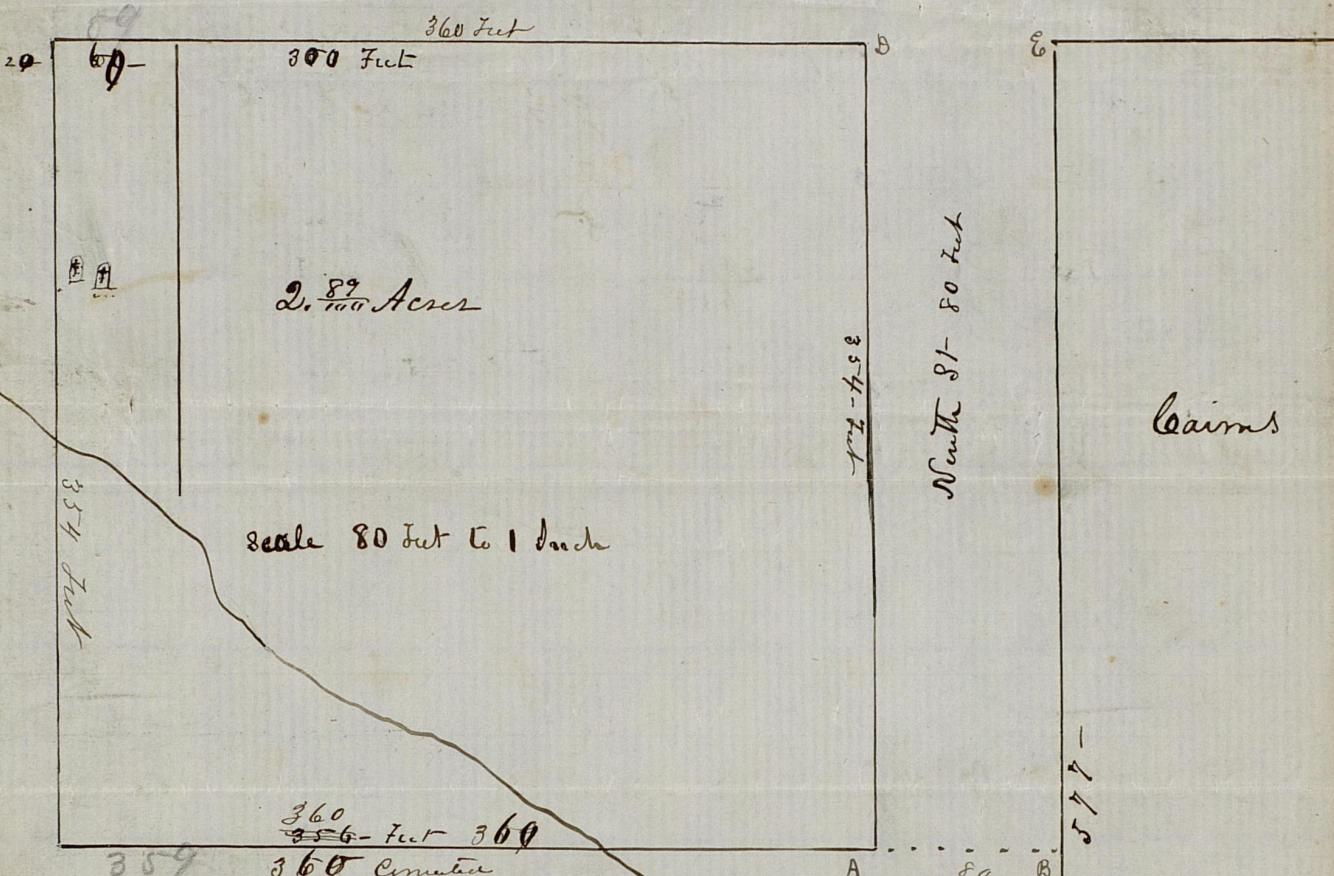 59
360 Feet
20
60-
300 Feet
D
E
2. 89/100 Acres
354 Feet
Ninth St- 80 Feet
Cairns
354 Feet
scale 80 Feet to 1 Inch
577-
360
356- Feet 360
359
360 Corrected
A
80
B